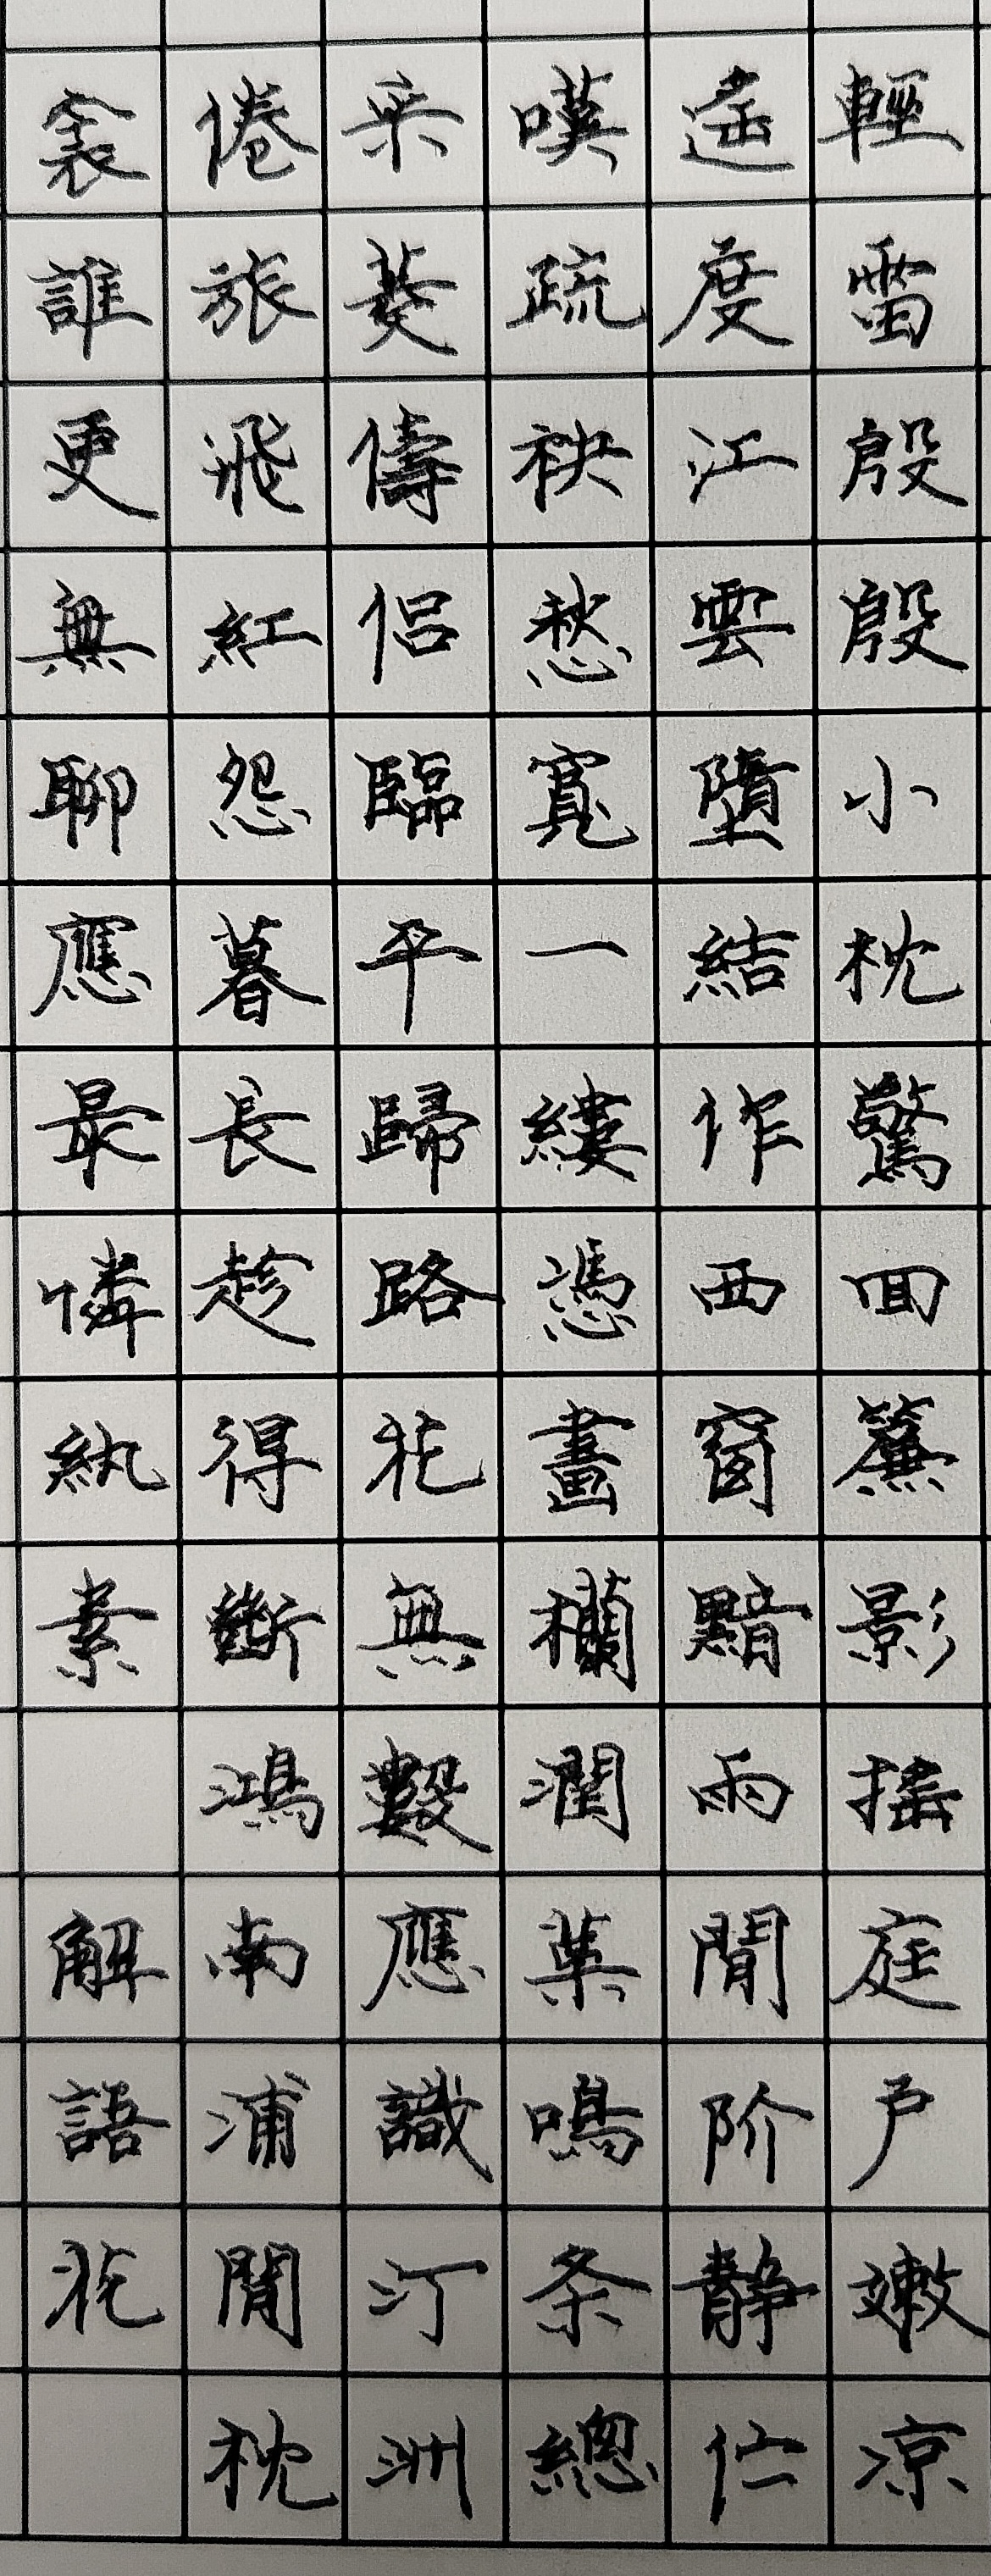 輕雷殷殷小枕驚回簾影摇庭户嫩凉
遥度江雲墮結作西窗黯雨閒阶静伫
嘆疏袂愁寬一縷憑畫欄潤葉鳴条總
采菱儔侣臨平歸路花無數應識汀洲
倦旅飛紅怨暮長趁得斷鴻南浦閒枕
衾誰更無聊應最憐紈素 解語花